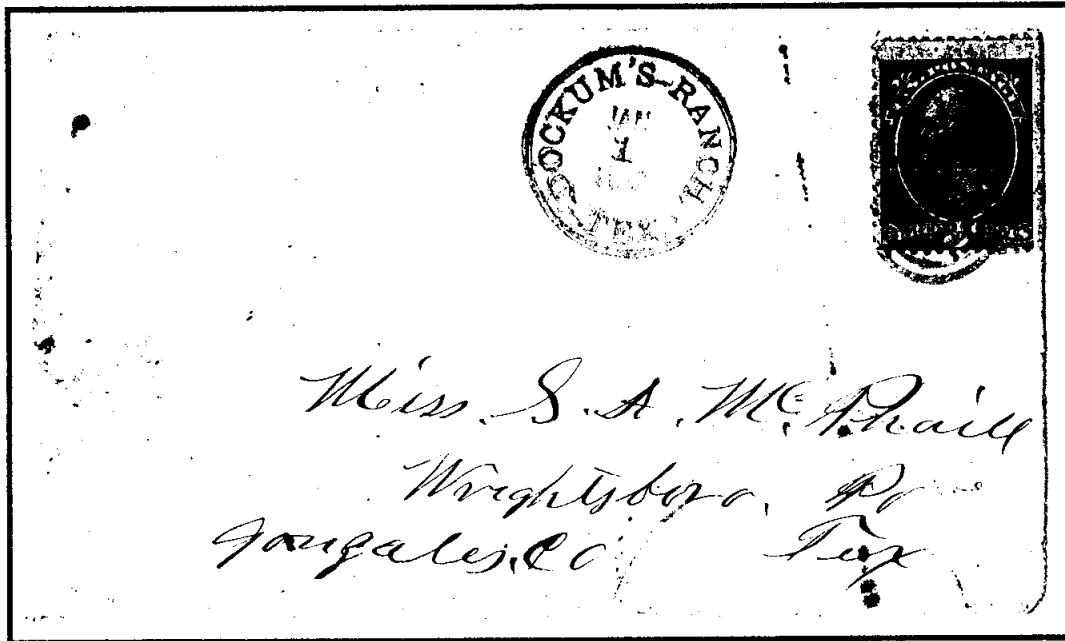 DOCKUM'S-RANCH,
JAN
1
TEX.
Miss. S. A. Mc. Phaill
Wrightsboro, Po
Gonzales, Co Tex